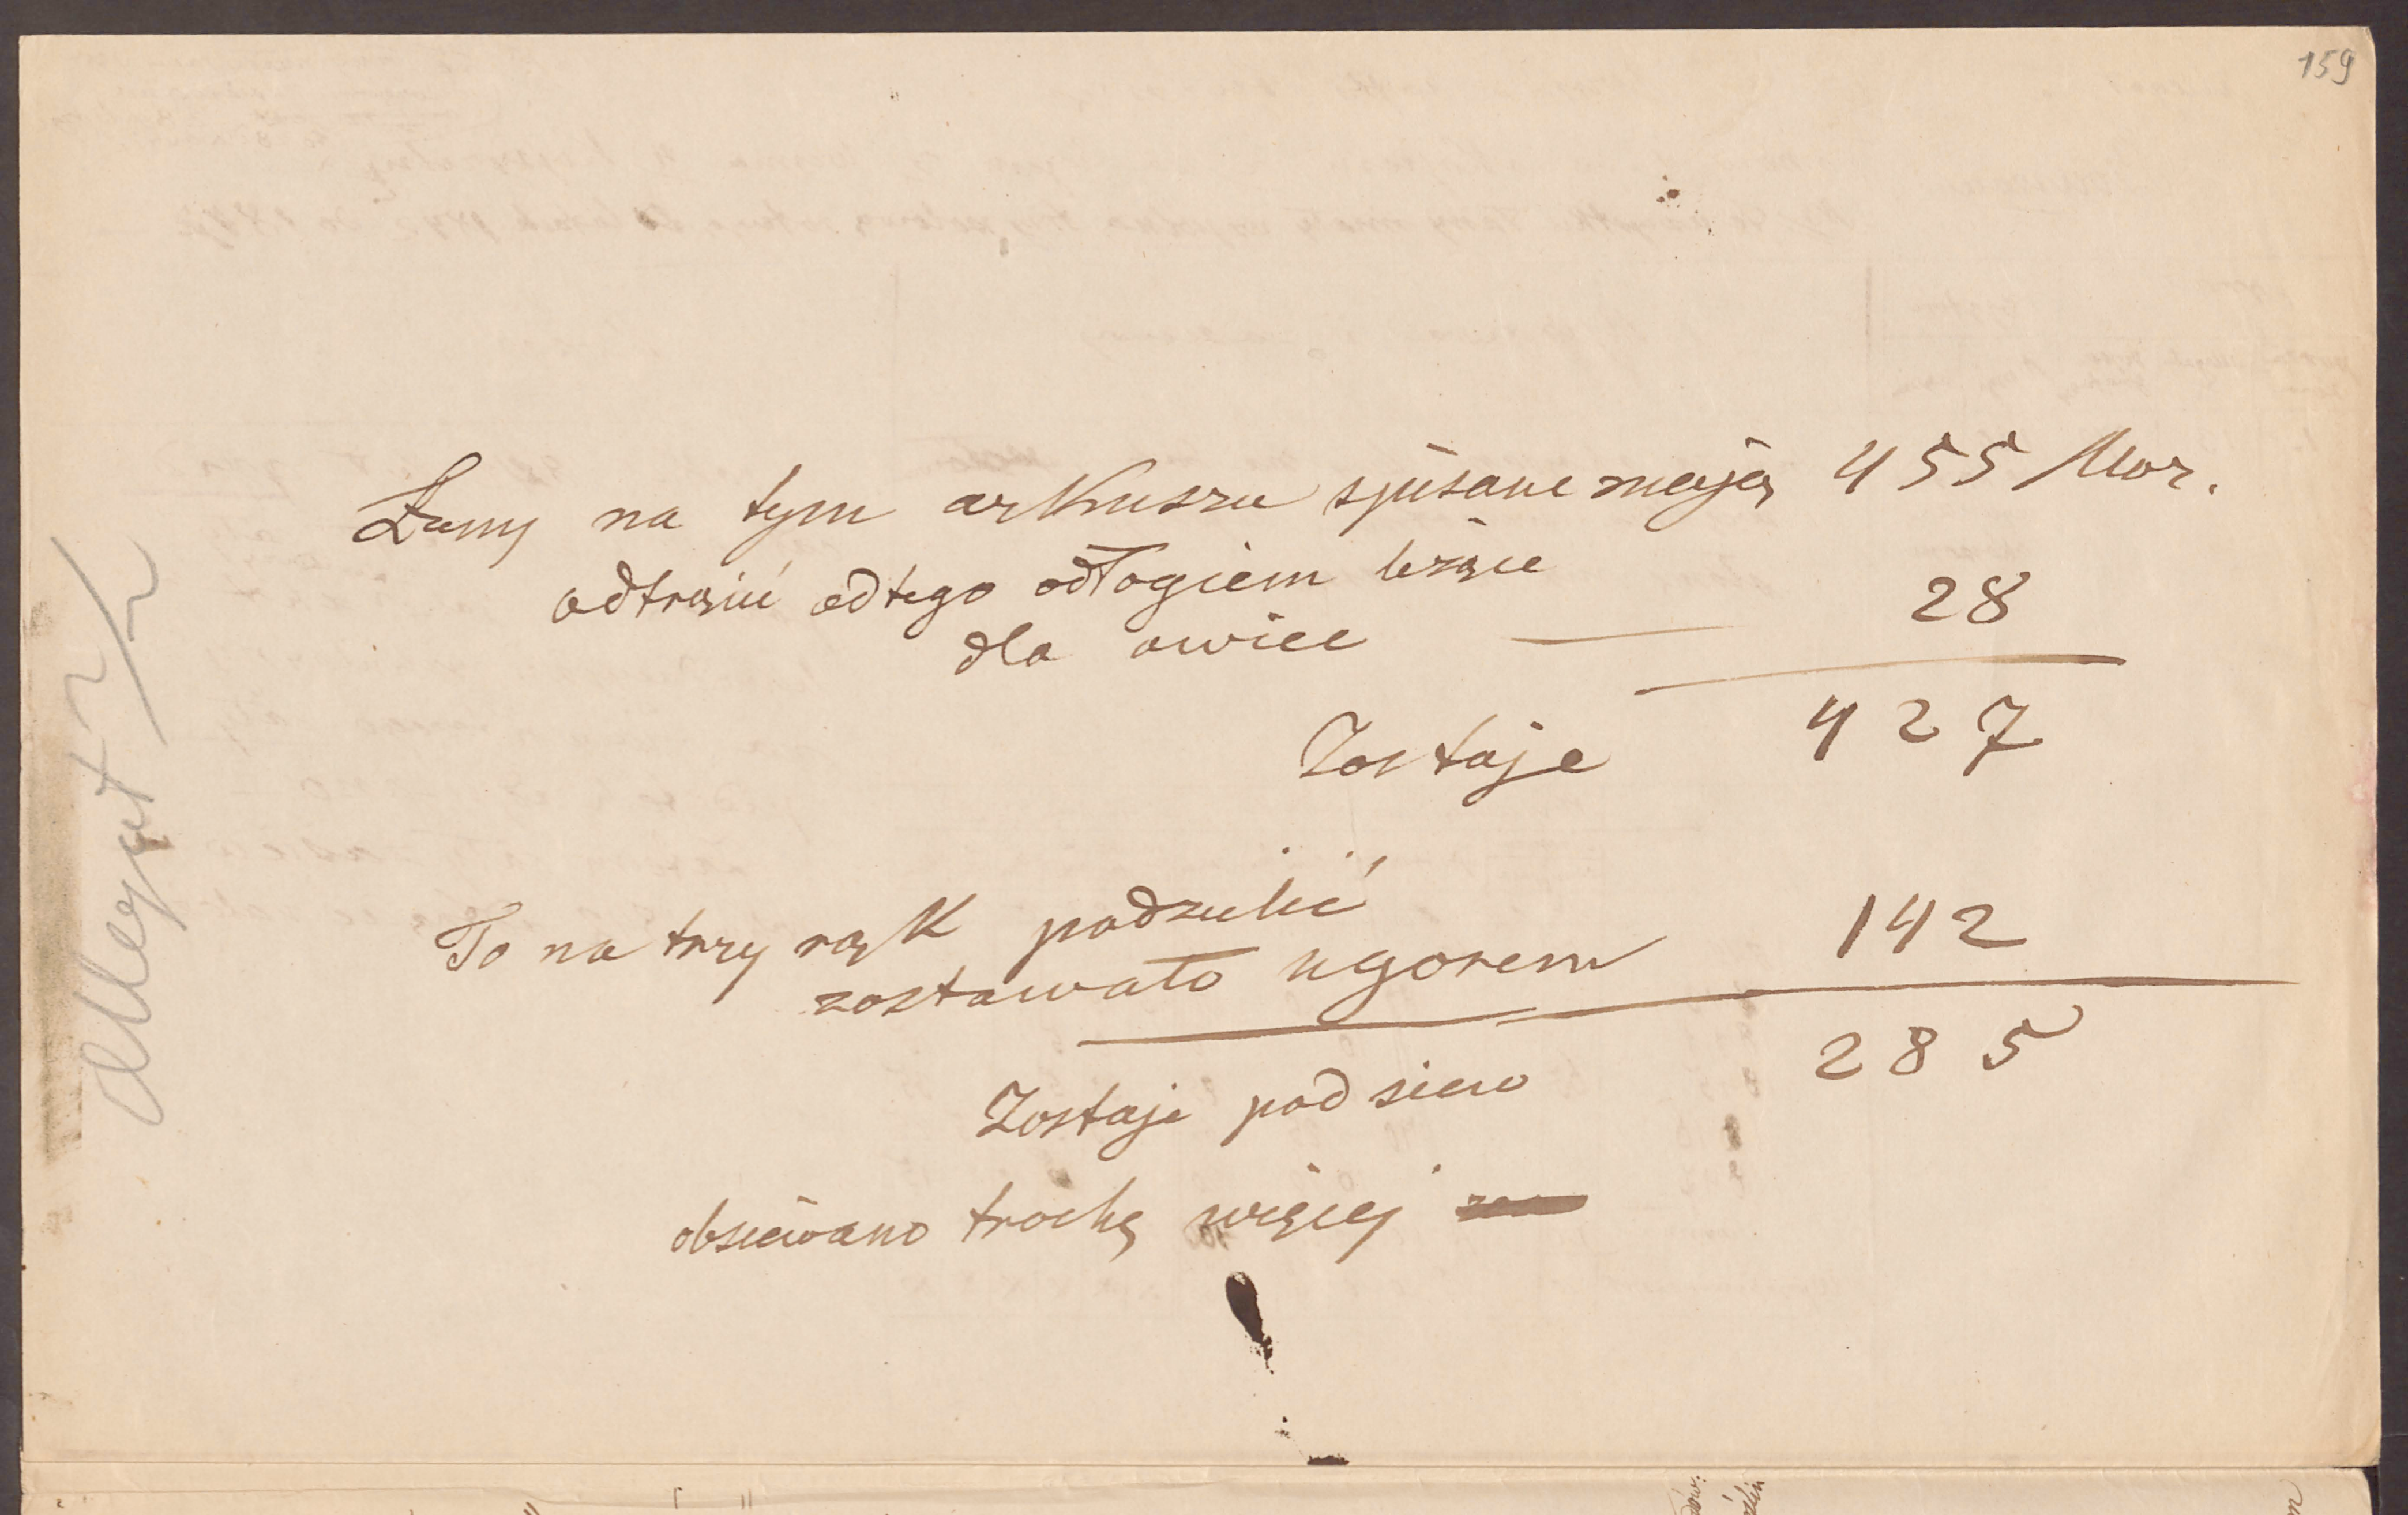 159
Łany na tym arkuszu spisane mają 455 Mor.
odtrącić od tego odłogiem leżące
dla owiec — 28
Zostaje 427
To na trzy rąk podzielić
zostawało ugorem 142
Zostaje pod siew 285
obsiewano trochę więcej
Allegat